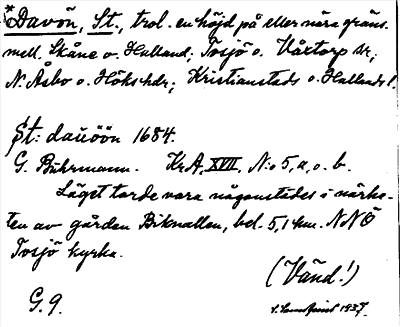 *Davön, St., trol. en höjd på eller nära gräns.
mell. Skåne o. Halland; Tosjö o. Våxtorp sr;
N. Åsbo o. Höks hdr; Kristianstads o. Hallands l.
St: dauöön 1684.
G. Buhrmann. KrA, XVII, N:o 5, a, o. b.
Läget torde vara någonstädes i närhe-
ten av gården Biknallen, bel. 5,1 km. NNÖ
Tosjö kyrka.
(Vänd!)
G. 9. 1937.